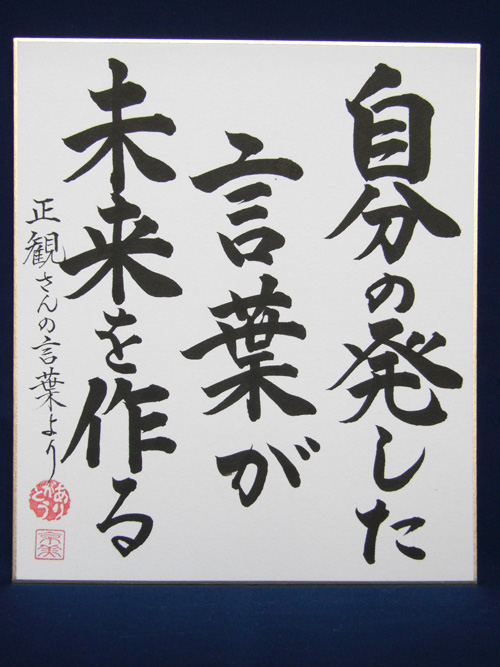 自分の発した
言葉が
未来を作る
正観さんの言葉より
ありがとう
京美